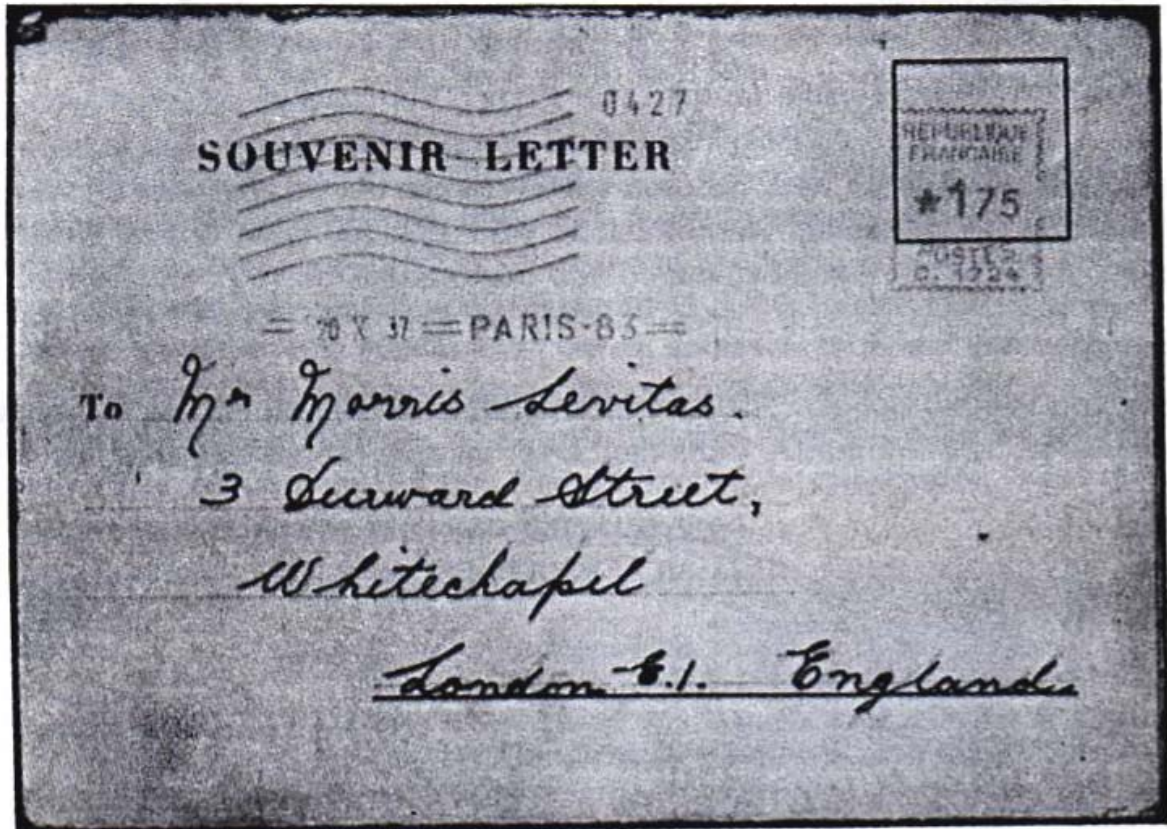 0427
SOUVENIR LETTER
REPUBLIQUE
FRANCAISE
*175
POSTES
C. 1724
= 20 X 37 == PARIS-83 =
To Mr Morris Levitas.
3 Durward Street,
Whitechapel
London E.1. England.